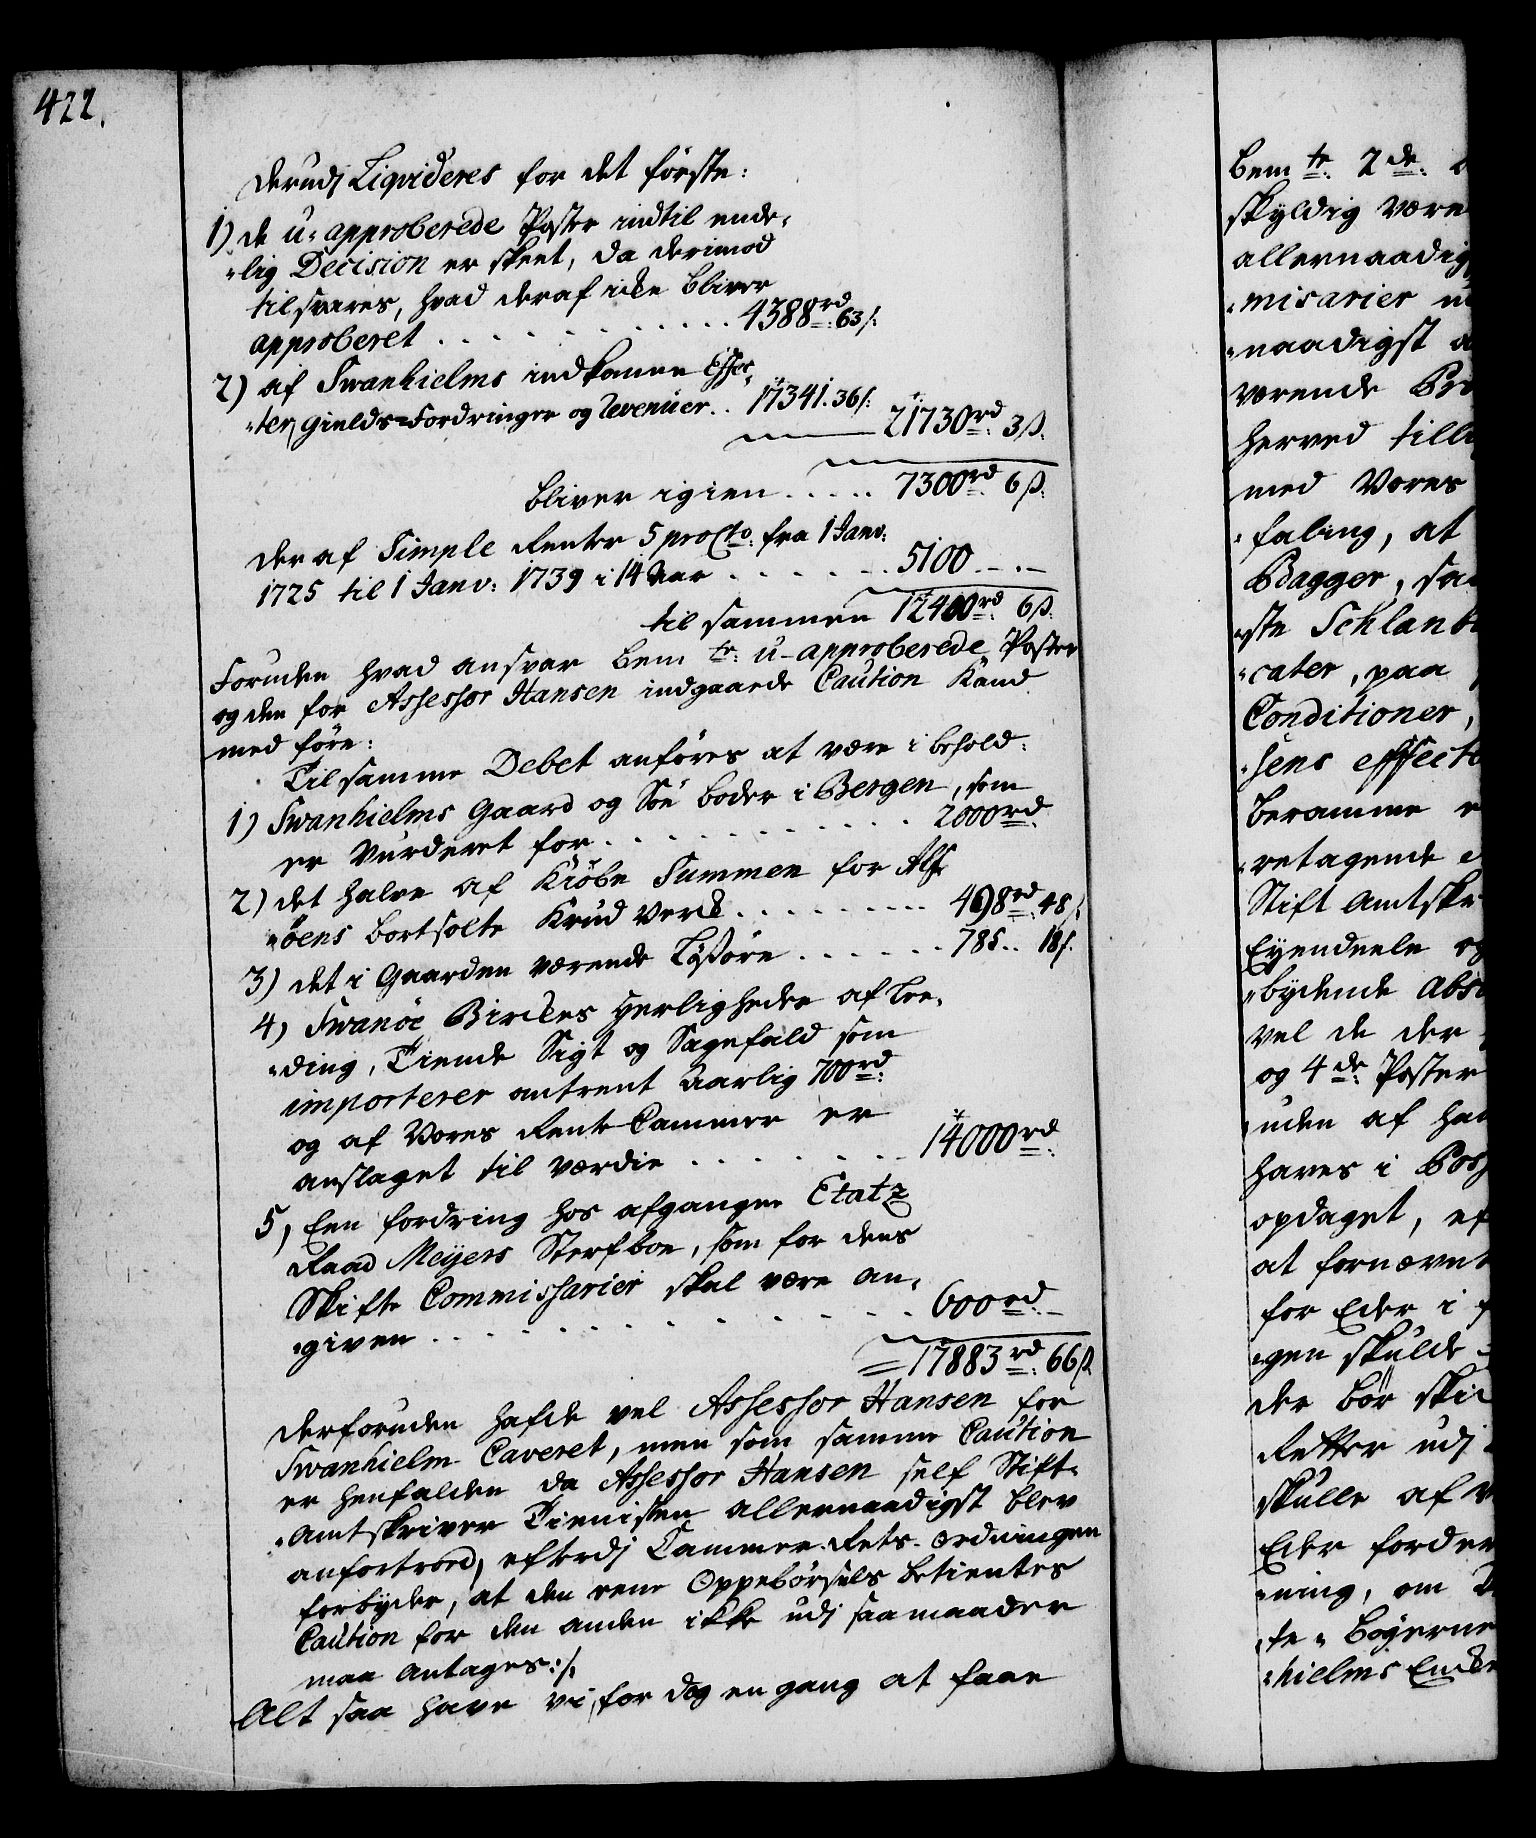 422.
derudj Liqvideres for det förste:
1) de u-approberede Poster indtil ende-
-lig Decision er skeet, da derimod
tilsvares, hvad deraf icke bliver
approberet . . . . . . . . . . . . 4388 rd: 63 s:
2) af Svanhielms indkomne Effec-
-ter, Gields-Fordringer og Revenüer. . 17341. 36 s:
21730 rd: 3 s:
bliver igien . . . . . 7300 rd: 6 s:
deraf Simple Renter 5 proCto: fra 1 Janv:
1725 til 1 Janv: 1739 i 14 Aar . . . . . . . 5100 - . -
tilsammen 12400 rd: 6 s:
Foruden hvad ansvar bem te: u-approberede Poster
og den for Assessor Hansen indgaaede Caution kand
med före:
Til samme Debet anföres at være i behold:
1) Svanhielms Gaard og Söe boder i Bergen, som
er Vurderet for . . . . . . . . . . . 2000 rd:
2) det halve af Kiöbe Summen for Alf-
-öens bortsolte Krud Verck . . . . . . . . . 498 rd: 48 s:
3) det i Gaarden værende Lösöre . . . . . . 785 . . 18 s.
4) Svanöe Birckes Herligheder af Lee-
-ding, Tiende Sigt og Sagefald som
importerer omtrent Aarlig 700 rd:
og af Vores Rente Cammer er
anslaget til værdie . . . . . . . 14000 rd:
5) Een fordring hos afgangne Etatz
Raad Meyers Sterfboe, som for dens
Skifte Commissarier skal være an-
-given . . . . . . . . . . . . . 600 rd: -
= 17883 rd: 66 s.
derforuden hafde vel Assessor Hansen for
Svanhielm Caveret, men som samme Caution
er henfalden da Assessor Hansen self Stift-
-Amtskriver Tienisten allernaadigst blev
anfortroed, efterdj Cammer-Rets-Ordningen
forbyder, at den eene Oppebörsels betientes
Caution for den anden ikke udj saa maader
maa Antages:/.
Alt saa have vi, for dog en gang at faae
bem te: 2 de:
skyldig være
allernaadig
-misarier
-naadigst
værende
herved
med Vores
-faling, at
Bagger,
-ste
-cater, paa
Conditioner,
-sens
beramme
-retagende
Stift Amtskr
Eyendeele og
-bydende
vel de der
og 4 de: Poster
uden af
haves i
opdaget,
at fornævnt
for Eder i
-gen skulde
der bör
Retter udj
skulle af
Eder
-ning, om
-te-
-hielms